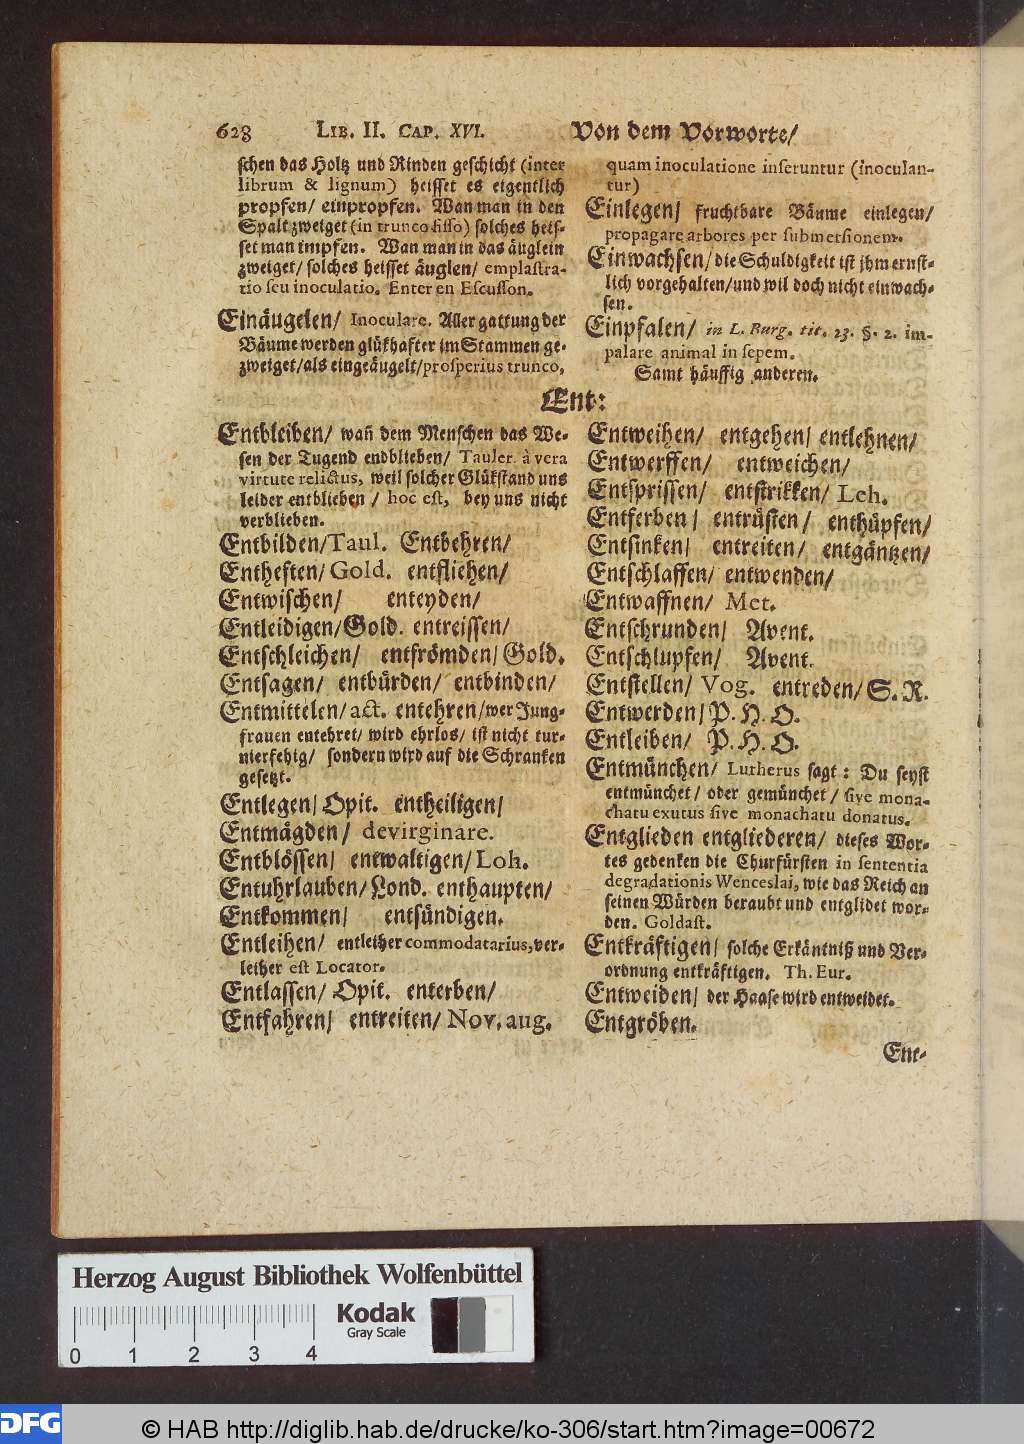 628 LIB. II. CAP. XVI. Von dem Vorworte/
schen das Holtz und Rinden geschicht (inter
librum & lignum) heisset es eigentlich
propfen/ einpropfen. Wan man in den
Spalt zweiget (in trunco fisso) solches heis-
set man impfen. Wan man in das äuglein
zweiget/ solches heisset äuglen/ emplastra-
tio seu inoculatio. Enter en Escusson.
Einäugelen/ Inoculare. Aller gattung der
Bäume werden glükhafter im Stammen ge-
zweiget/als eingeäugelt/prosperius trunco,
quam inoculatione inseruntur (inoculan-
tur)
Einlegen/ fruchtbare Bäume einlegen/
propagare arbores per submersionem.
Einwachsen/ die Schuldigkeit ist jhm ernst-
lich vorgehalten/und wil doch nicht einwach-
sen.
Einpfalen/ in L. Burg. tit. 23. §. 2. im-
palare animal in sepem.
Samt häuffig anderen.
Ent:
Entbleiben/ wañ dem Menschen das We-
sen der Tugend endblieben/ Tauler. à vera
virtute relictus, weil solcher Glükstand uns
leider entblieben / hoc est, bey uns nicht
verblieben.
Entbilden/Taul. Entbehren/
Entheften/Gold. entfliehen/
Entwischen/ enteyden/
Entleidigen/Gold. entreissen/
Entschleichen/ entfrömden/Gold.
Entsagen/ entbürden/ entbinden/
Entmittelen/act. entehren/wer Jung-
frauen entehret/ wird ehrlos/ ist nicht tur-
nierfehig/ sondern wird auf die Schranken
gesetzt.
Entlegen/Opit. entheiligen/
Entmägden/ devirginare.
Entblössen/ entwaltigen/Loh.
Entuhrlauben/Lond. enthaupten/
Entkommen/ entsündigen.
Entleihen/ entleiher commodatarius,ver-
leiher est Locator.
Entlassen/ Opit. enterben/
Entfahren/ entreiten/ Nov. aug.
Entweihen/ entgehen/ entlehnen/
Entwerffen/ entweichen/
Entsprissen/ entstrikken/ Leh.
Entferben/ entrüsten/ enthüpfen/
Entsinken/ entreiten/ entgäntzen/
Entschlaffen/ entwenden/
Entwaffnen/ Met.
Entschrunden/ Avent.
Entschlupfen/ Avent.
Entstellen/ Vog. entreden/ S. R.
Entwerden/P. H. O.
Entleiben/ P. H. O.
Entmünchen/ Lutherus sagt: Du seyst
entmünchet/ oder gemünchet/ sive mona-
chatu exutus sive monachatu donatus.
Entglieden entgliederen/ dieses Wor-
tes gedenken die Churfürsten in sententia
degradationis Wenceslai, wie das Reich an
seinen Würden beraubt und entglidet wor-
den. Goldast.
Entkräftigen/ solche Erkäntniß und Ver-
ordnung entkräftigen. Th. Eur.
Entweiden/ der Haase wird entweidet.
Entgröben.
Ent-
Herzog August Bibliothek Wolfenbüttel
Kodak
Gray Scale
0 1 2 3 4
DFG © HAB http://diglib.hab.de/drucke/ko-306/start.htm?image=00672